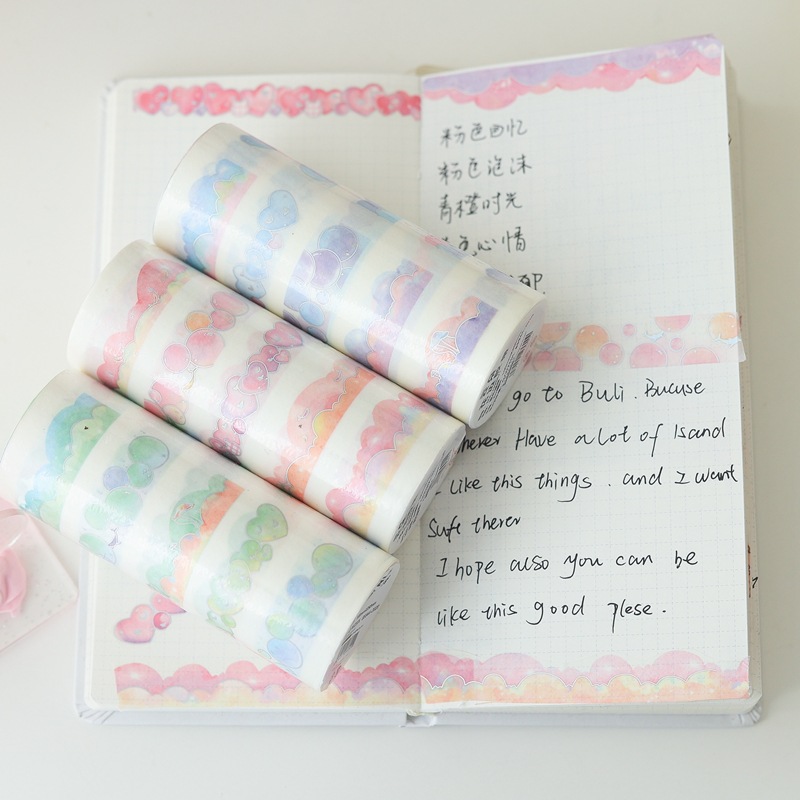 粉色回忆
粉色泡沫
青橙时光
色心情
go to Buli. Bucuse
herer Have a lot of Isand
Like this things. and I want
Sufe therer
I hope also you can be
like this good plese.